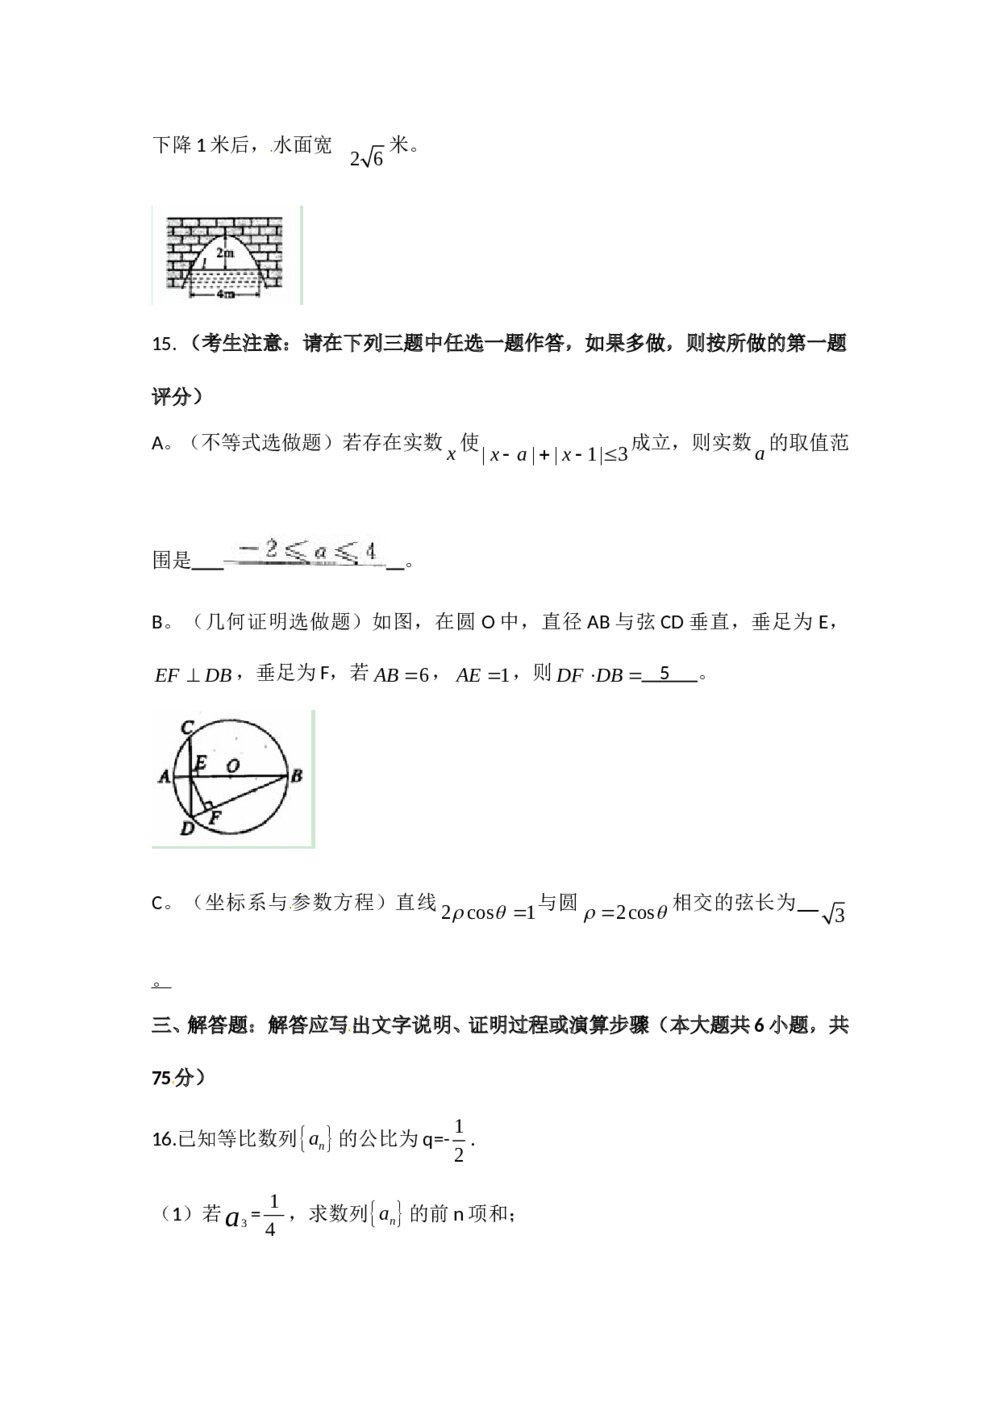 下降 1 米后，水面宽 2√6 米。
2m
l
4m
15.（考生注意：请在下列三题中任选一题作答，如果多做，则按所做的第一题
评分）
A。（不等式选做题）若存在实数 x 使 | x - a | + | x - 1 | ≤ 3 成立，则实数 a 的取值范
围是 －2 ≤ a ≤ 4 。
B。（几何证明选做题）如图，在圆 O 中，直径 AB 与弦 CD 垂直，垂足为 E，
EF ⊥ DB，垂足为 F，若 AB = 6，AE = 1，则 DF · DB = 5 。
C
A E O B
D F
C。（坐标系与参数方程）直线 2ρcosθ = 1 与圆 ρ = 2cosθ 相交的弦长为 √3
。
三、解答题：解答应写出文字说明、证明过程或演算步骤（本大题共 6 小题，共
75 分）
16.已知等比数列{aₙ} 的公比为 q=-1/2 .
（1）若 a₃ = 1/4，求数列{aₙ} 的前 n 项和；